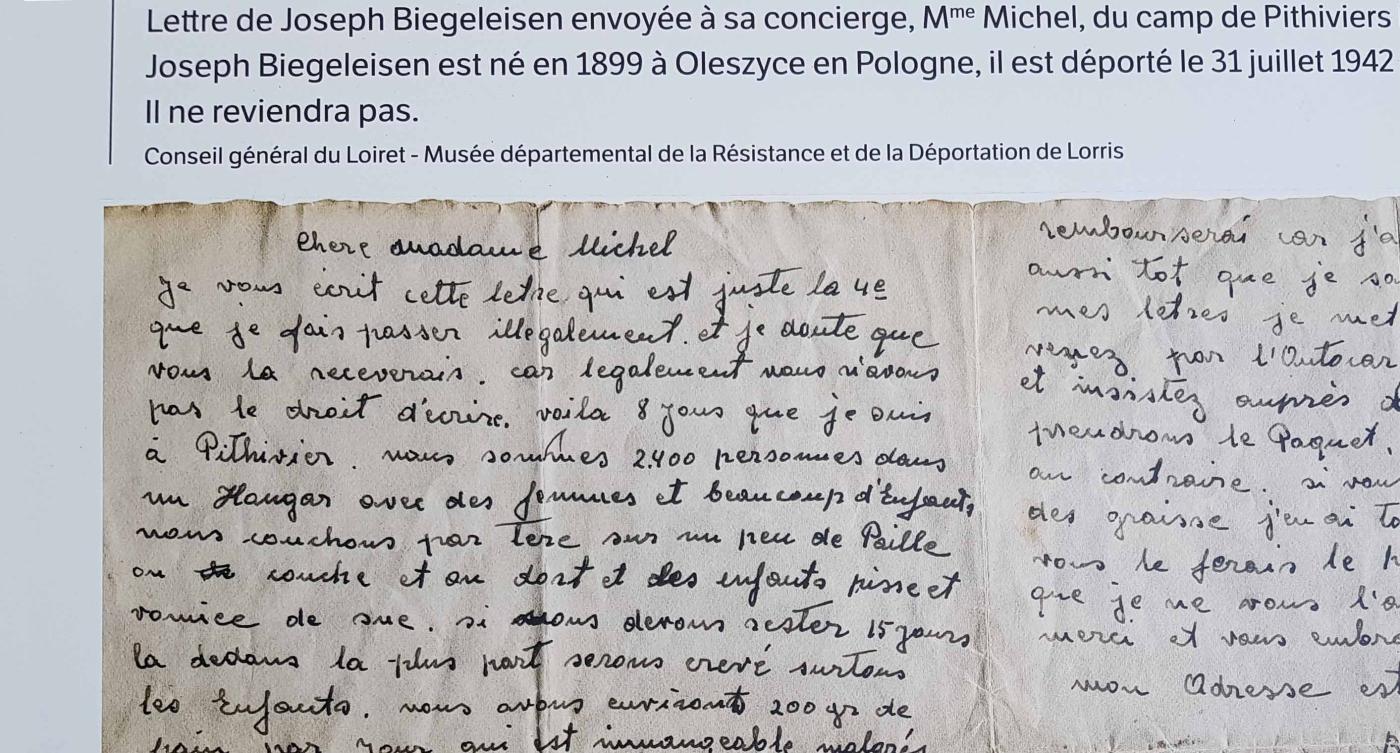 Lettre de Joseph Biegeleisen envoyée à sa concierge, Mme Michel, du camp de Pithiviers
Joseph Biegeleisen est né en 1899 à Oleszyce en Pologne, il est déporté le 31 juillet 1942
Il ne reviendra pas.
Conseil général du Loiret - Musée départemental de la Résistance et de la Déportation de Lorris
Chere madame Michel
Je vous écrit cette letre qui est juste la 4e
que je fais passer illegalement. et je doute que
vous la receverais. car legalement nous n'avons
pas le droit d'écrire. voila 8 jous que je suis
à Pithivier. nous sommes 2.400 personnes dans
un Hangar avec des femmes et beaucoup d'Enfants,
nous couchons par tere sur un peu de Paille
on couche et on dort et des enfants pisse et
vomice de sue. si nous devons rester 15 jours
la dedans la plus part serons crevé surtous
les Enfants. nous avons environt 200 gr de
pain par jour qui est immangeable malgrés
rembourserai car j'a
aussi tot que je sa
mes letres je met
venez par l'Autocar
et insistez auprès d
prendrons le Paquet,
au contraire. si vou
des graisse j'en ai to
vous le ferais le h
que je ne vous l'a
merci et vous embra
mon Adresse est